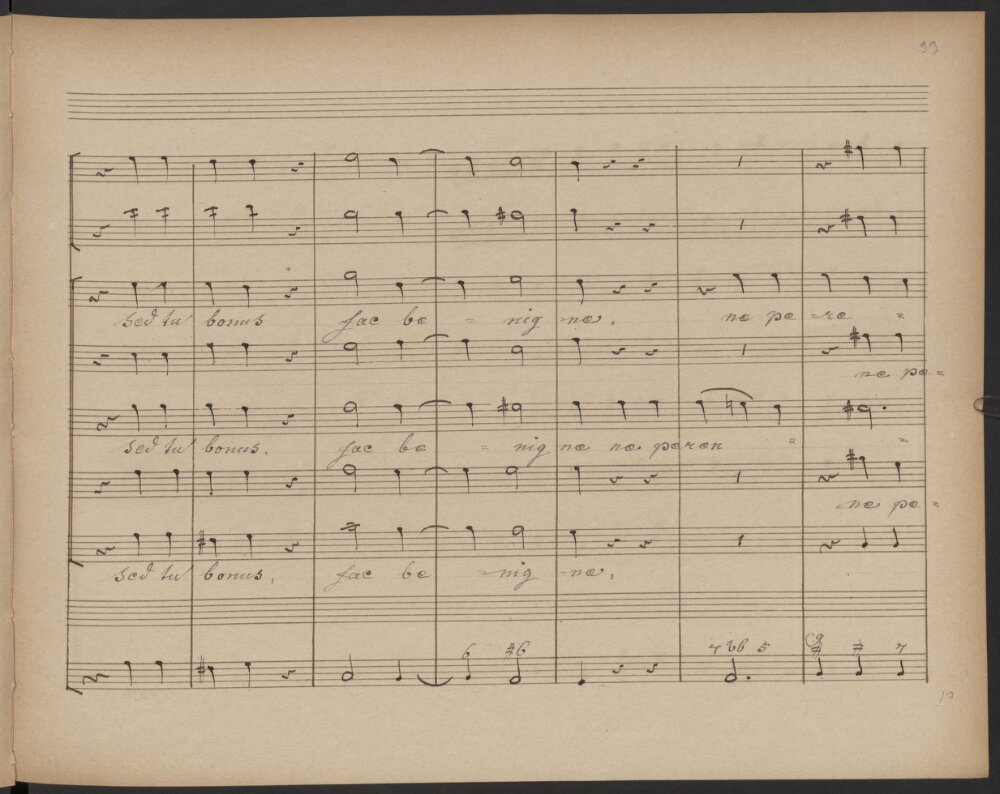 33
sed tu bonus fac be = nig = ne. ne pe = re =
ne pe =
sed tu bonus. fac be = nig ne ne peren = =
ne pe =
sed tu bonus. fac be = nig = ne.
6 #6 7 b6 5 9 # # 7
10